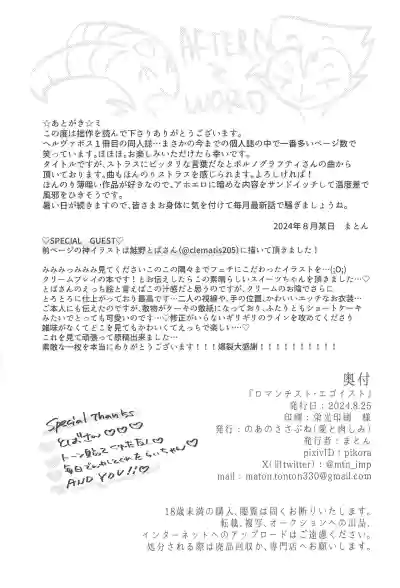 AFTER WORD
☆あとがき☆ミ
この度は拙作を読んで下さりありがとうございます。
ヘルヴァボス1冊目の同人誌…まさかの今までの個人誌の中で一番多いページ数で
笑っています。ほほほ。お楽しみいただけたら幸いです。
タイトルですが、ストラスにピッタリな言葉だなとポルノグラフティさんの曲から
頂いております。曲もほんのりストラスを感じられます。よろしければ!
ほんのり薄暗い作品が好きなので、アホエロに暗めな内容をサンドイッチして温度差で
風邪をひきそうです。
暑い日が続きますので、皆さまお身体に気を付けて毎月最新話で騒ぎましょうね。
2024年8月某日 まとん
♡SPECIAL GUEST♡
前ページの神イラストは鮭野とばさん(@clematis205)に描いて頂きました!
みみみっみみみ見てくださいこのこの隅々までフェチにこだわったイラストを…(;O;)
クリームプレイの本です!とお伝えしたらこの素晴らしいスイーツちゃんを頂きました…♡
とばさんのえっち絵と言えばこの汗感だと思うのですが、クリームのお陰でさらに
とろとろに仕上がっており最高です…二人の視線や、手の位置、かわいいエッチなお衣装…
ご本人にも伝えたのですが、敷物がケーキの敷紙になっており、ふたりともショートケーキ
みたいでとっても可愛いのです…♡修正がいらないギリギリのラインを攻めてくださり
雑味がなくてどこを見てもかわいくてえっちで楽しい…♡
これを見て頑張って原稿出来ました…
素敵な一枚を本当にありがとうございます!!!爆裂大感謝!!!!!!!!!!
Special Thanks
とばさん♡♡♡
AND YOU!!
奥付
『ロマンチスト・エゴイスト』
発行日:2024.8.25
印刷:栄光印刷 様
発行:のあのささぶね(愛と肉しみ)
発行者:まとん
pixivID|pikora
X(旧twitter):@mtn_imp
mail:maton.tonton330@gmail.com
18歳未満の購入、閲覧は固くお断りいたします。
転載、複写、オークションへの出品、
インターネットへのアップロードはご遠慮ください。
処分される際は廃品回収か、専門店へお願いします。